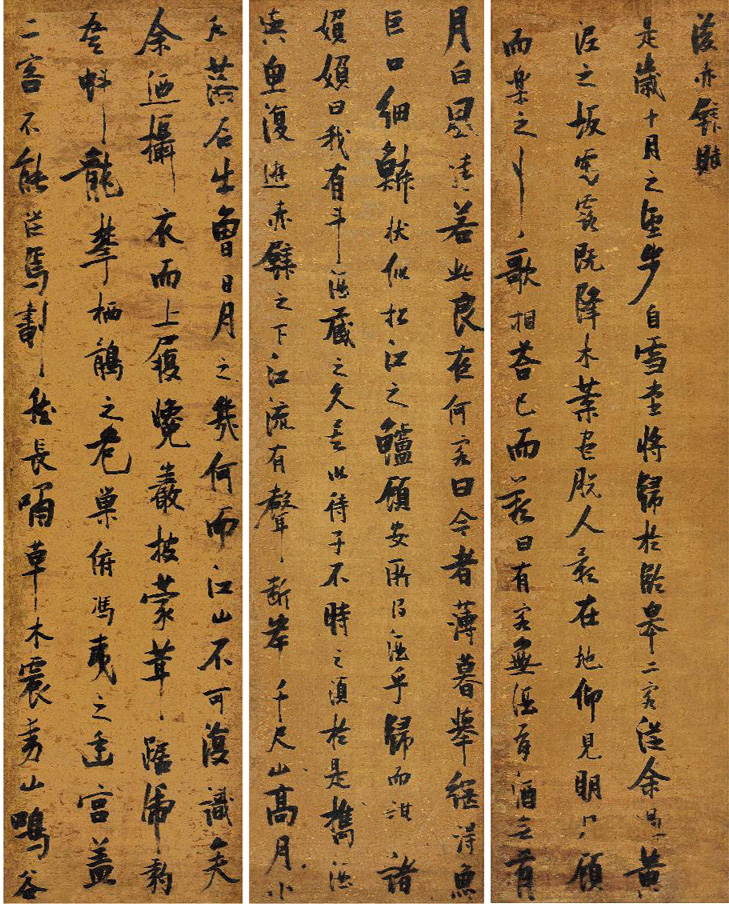 後赤壁賦
是歲十月之望步自雪堂將歸於臨皋二客從余過黃
泥之坂霜露既降木葉盡脫人影在地仰見明月顧
而樂之行歌相答已而歎曰有客無酒有酒無肴
月白風清若此良夜何客曰今者薄暮舉網得魚
巨口細鱗狀似松江之鱸顧安所得酒乎歸而謀諸
婦婦曰我有斗酒藏之久矣以待子不時之須於是攜酒
與魚復遊赤壁之下江流有聲斷岸千尺山高月小
水落石出曾日月之幾何而江山不可復識矣
余迺攝衣而上履巉巖披蒙茸踞虎豹
登虯龍攀栖鶻之危巢俯馮夷之幽宮蓋
二客不能從焉劃然長嘯草木震動山鳴谷